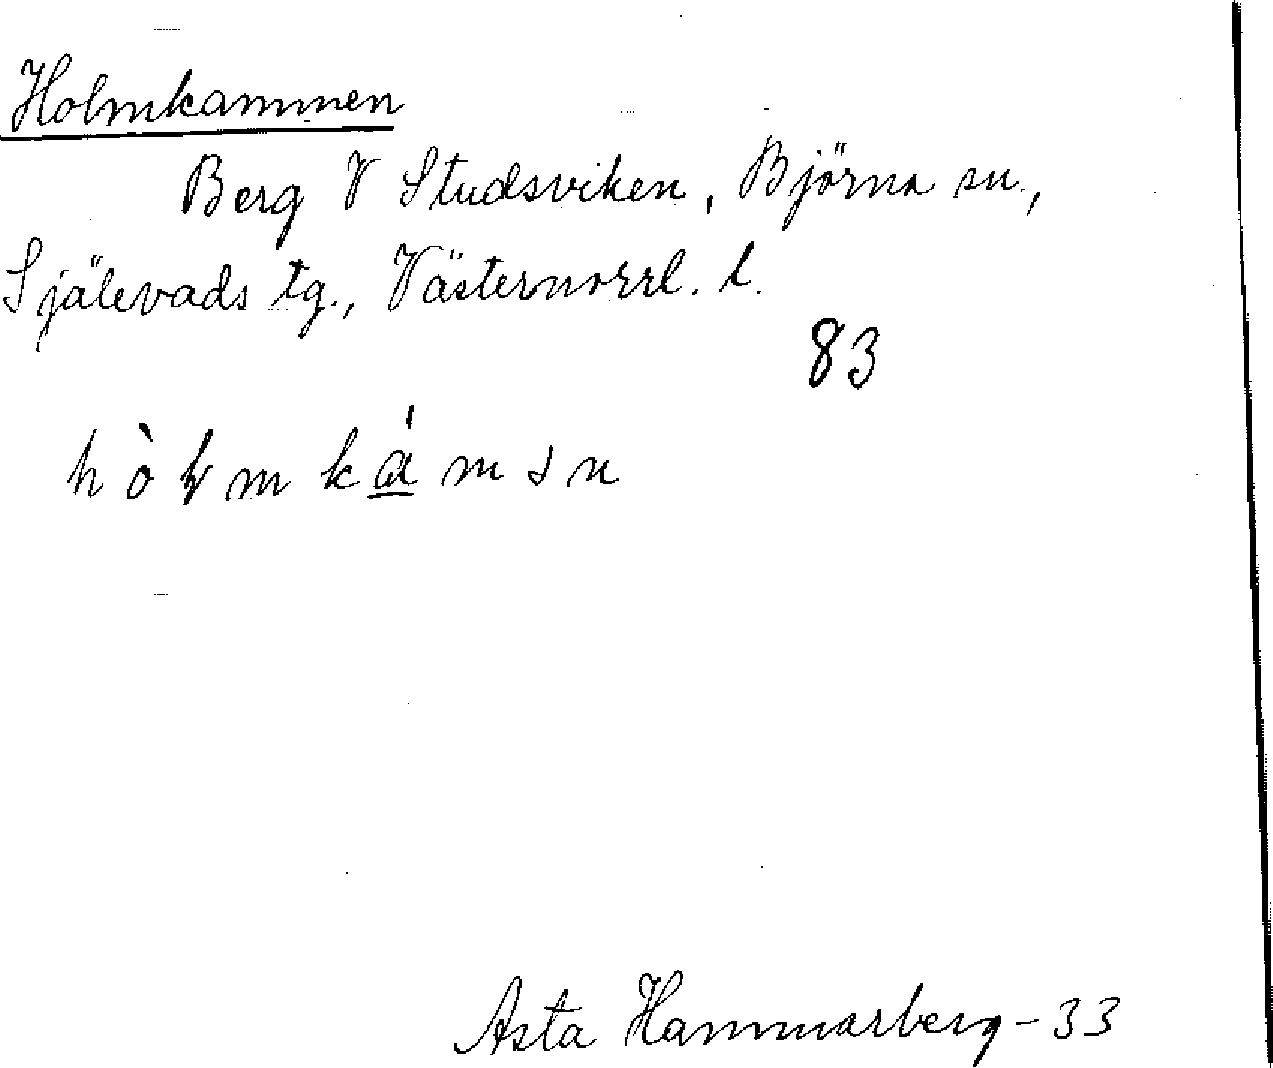 Holmkammen
Berg V Studsviken, Björna sn.,
Själevads tg., Västernorrl. l.
83
Asta Hammarberg - 33